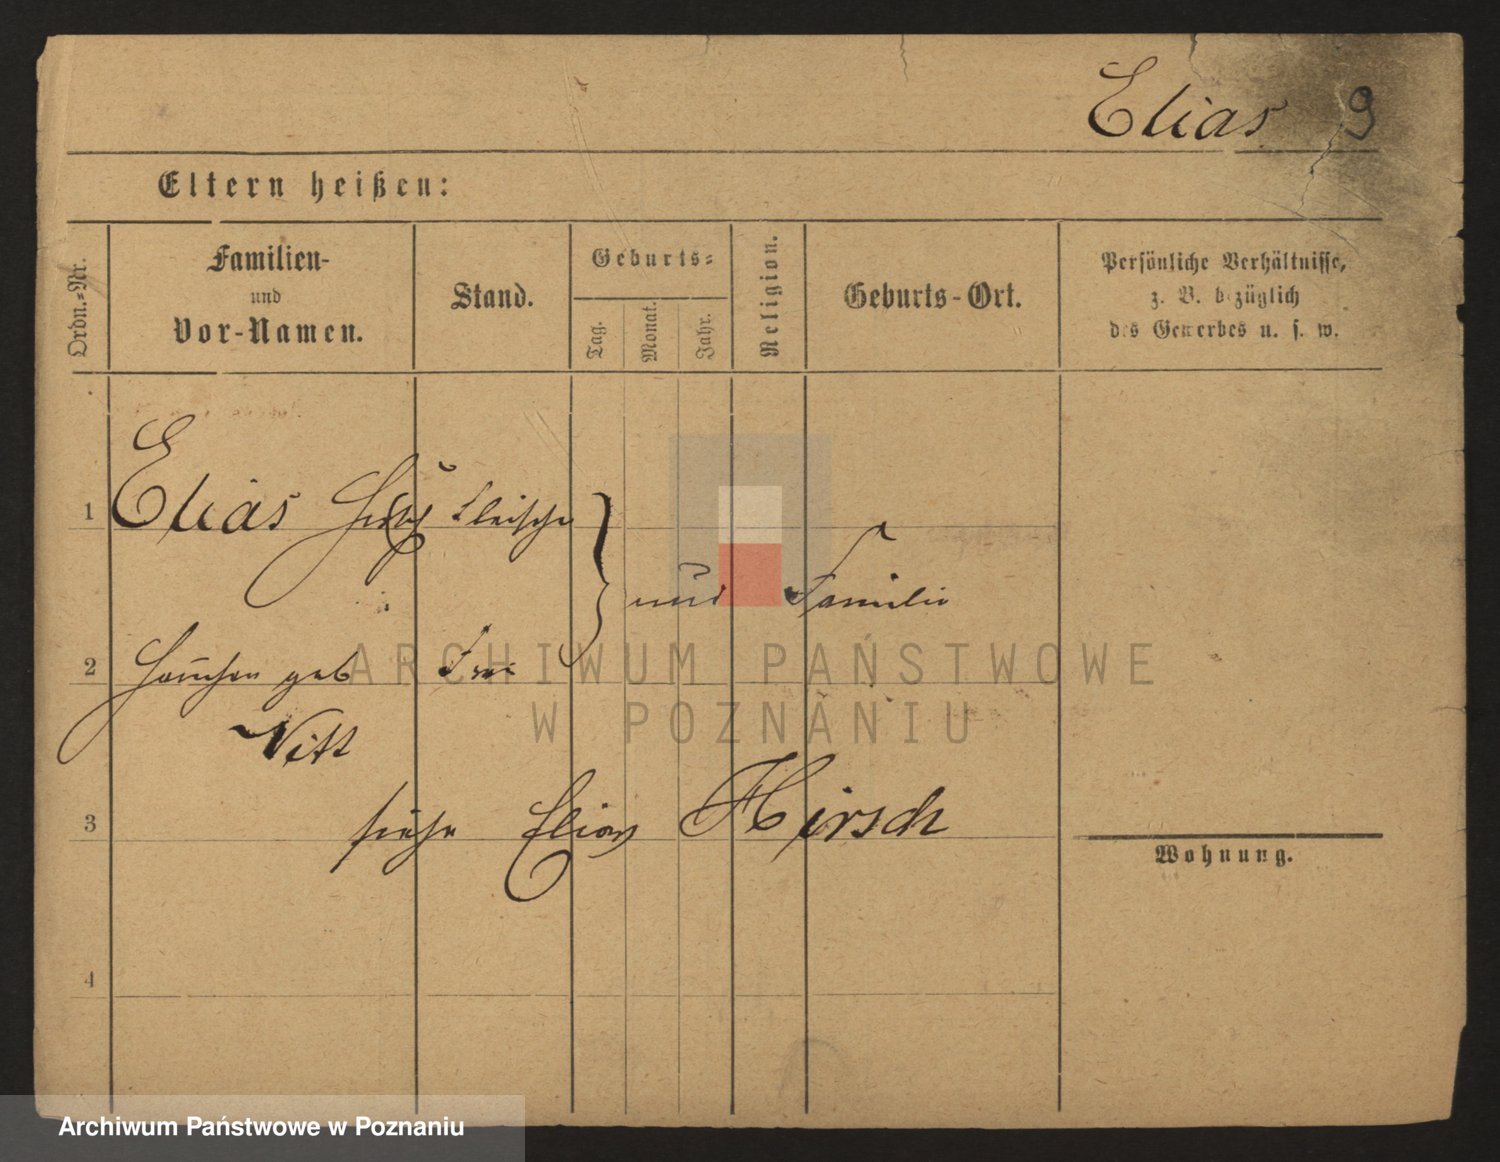 Elias 9
Eltern heißen:
Ordn.=Nr.
Familien-
und
Vor-Namen.
Stand.
Geburts=
Tag.
Monat.
Jahr.
Religion.
Geburts-Ort.
Persönliche Verhältnisse,
z. B. bezüglich
des Gewerbes u. s. w.
1 Elias
und Familie
2 geb Frau
Witt
3 siehe Elias Hirsch
Wohnung.
4
ARCHIWUM PAŃSTWOWE
W POZNANIU
Archiwum Państwowe w Poznaniu